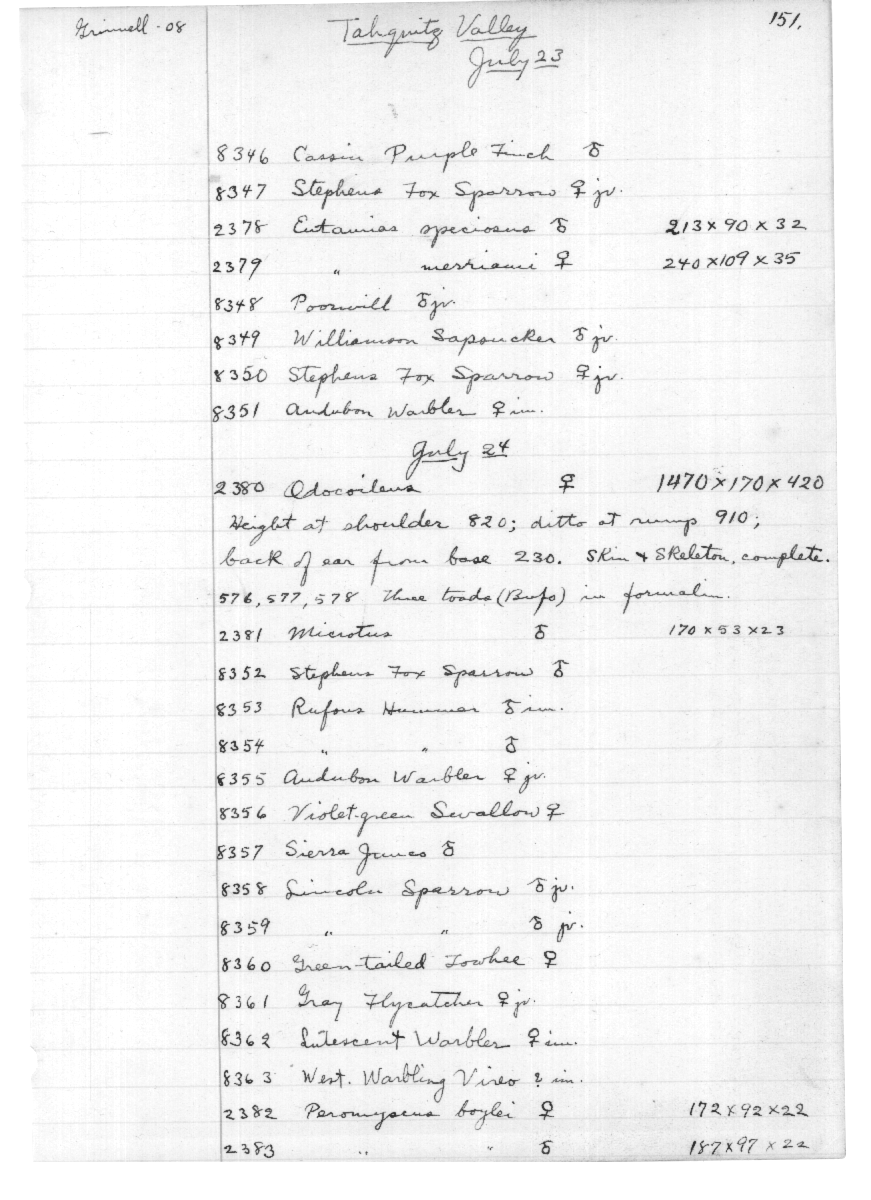 Grinnell - 08
Tahquitz Valley
151.
July 23
8346 Cassin Purple Finch ♂
8347 Stephens Fox Sparrow ♀ jv.
2378 Eutamias speciosus ♂ 213 x 90 x 32
2379 " merriami ♀ 240 x 109 x 35
8348 Poorwill ♂ jv.
8349 Williamson Sapsucker ♂ jv.
8350 Stephens Fox Sparrow ♀ jv.
8351 Audubon Warbler ♀ im.
July 24
2380 Odocoileus ♀ 1470 x 170 x 420
Height at shoulder 820; ditto at rump 910;
back of ear from base 230. Skin + Skeleton, complete.
576, 577, 578 three toads (Bufo) in formalin.
2381 Microtus ♂ 170 x 53 x 23
8352 Stephens Fox Sparrow ♂
8353 Rufous Hummer ♂ im.
8354 " " ♂
8355 Audubon Warbler ♀ jv.
8356 Violet-green Swallow ♀
8357 Sierra Junco ♂
8358 Lincoln Sparrow ♂ jv.
8359 " " ♂ jv.
8360 Green-tailed Towhee ♀
8361 Gray Flycatcher ♀ jv.
8362 Lutescent Warbler ♀ im.
8363 West. Warbling Vireo ? im.
2382 Peromyscus boylei ♀ 172 x 92 x 22
2383 " " ♂ 187 x 97 x 22